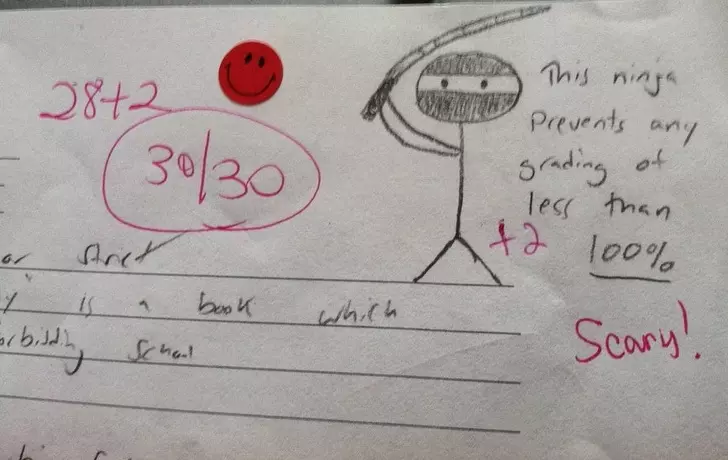 28+2
30/30
This ninja
Prevents any
grading of
less than
100%
+2
Scary!
or strict
y is a book which
orbidding School